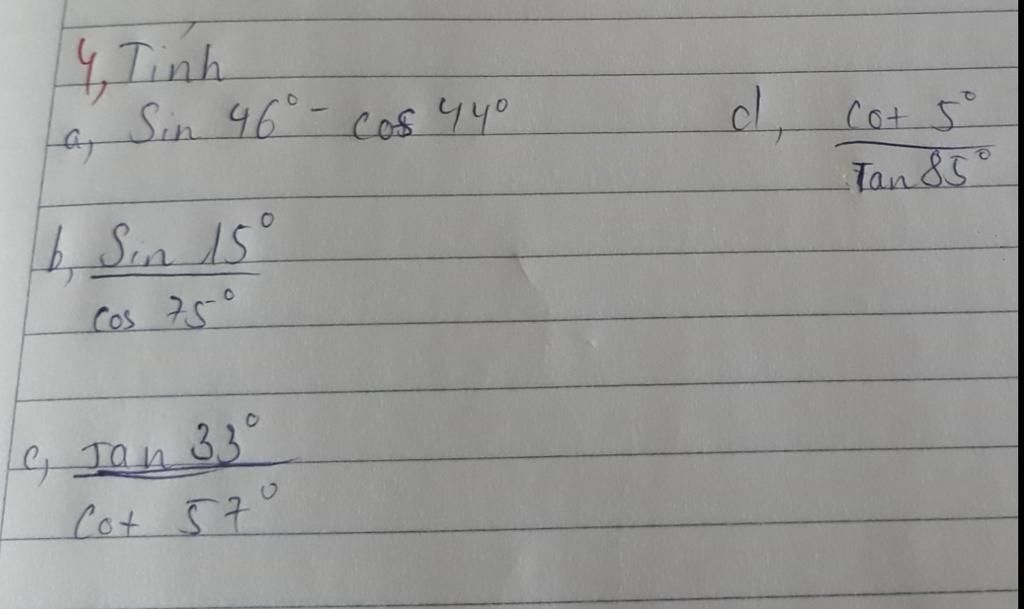 4, Tính
a, Sin 46° - cos 44°
d, Cot 5°
Tan 85°
b, Sin 15°
cos 75°
c, Tan 33°
Cot 57°